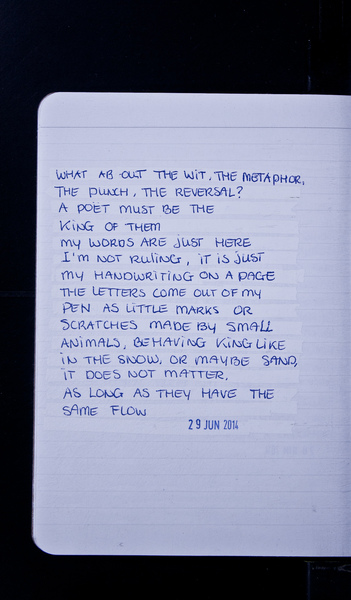 WHAT AB OUT THE WIT, THE METAPHOR,
THE PUNCH, THE REVERSAL?
A POET MUST BE THE
KING OF THEM
MY WORDS ARE JUST HERE
I'M NOT RULING, IT IS JUST
MY HANDWRITING ON A PAGE
THE LETTERS COME OUT OF MY
PEN AS LITTLE MARKS OR
SCRATCHES MADE BY SMALL
ANIMALS, BEHAVING KINGLIKE
IN THE SNOW, OR MAYBE SAND,
IT DOES NOT MATTER,
AS LONG AS THEY HAVE THE
SAME FLOW
29 JUN 2014